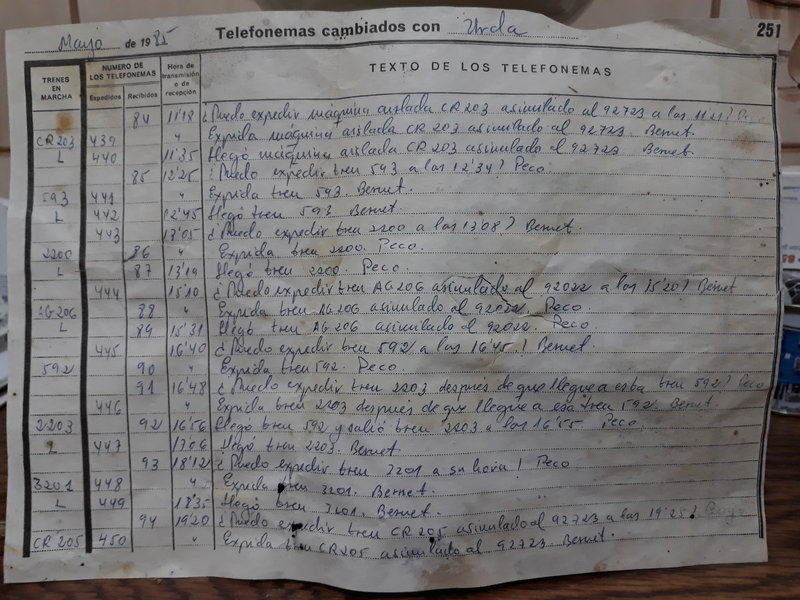 Mayo de 1985 Telefonemas cambiados con Urda 251
TRENES EN MARCHA NUMERO DE LOS TELEFONEMAS Expedidos Recibidos Hora de transmisión o de recepción TEXTO DE LOS TELEFONEMAS
84 11'18 ¿Puedo expedir máquina aislada CR 203 asimilado al 92723 a las 11'21? Peco
CR203 439 " Expida máquina aislada CR 203 asimilado al 92723. Bernet.
L 440 11'35 Llegó máquina aislada CR 203 asimilado al 92723. Bernet.
85 12'25 ¿Puedo expedir tren 593 a las 12'34? Peco.
593 441 " Expida tren 593. Bernet.
L 442 12'45 Llegó tren 593 Bernet.
443 13'05 ¿Puedo expedir tren 2200 a las 13'08? Bernet.
2200 86 " Expida tren 2200. Peco.
L 87 13'19 Llegó tren 2200. Peco.
444 15'10 ¿Puedo expedir tren AG 206 asimulado al 92022 a las 15'20? Bernet
AG206 88 " Expida tren AG 206 asimulado al 92022. Peco.
L 89 15'31 Llegó tren AG 206 asimulado al 92022. Peco.
445 16'40 ¿Puedo expedir tren 592 a las 16'45? Bernet.
592 90 " Expida tren 592. Peco.
91 16'48 ¿Puedo expedir tren 2203 después de que llegue a esta tren 592? Peco
446 " Expida tren 2203 después de que llegue a esa tren 592. Bernet
2203 92 16'56 Llegó tren 592 y salió tren 2203 a las 16'55 Peco.
L 447 17'06 Llegó tren 2203. Bernet.
93 18'12 ¿Puedo expedir tren 3201 a su hora? Peco
3201 448 " Expida tren 3201. Bernet.
L 449 18'35 Llegó tren 3201. Bernet.
94 19'20 ¿Puedo expedir tren CR 205 asimulado al 92723 a las 19'25?
CR 205 450 " Expida tren CR 205 asimulado al 92723. Bernet.